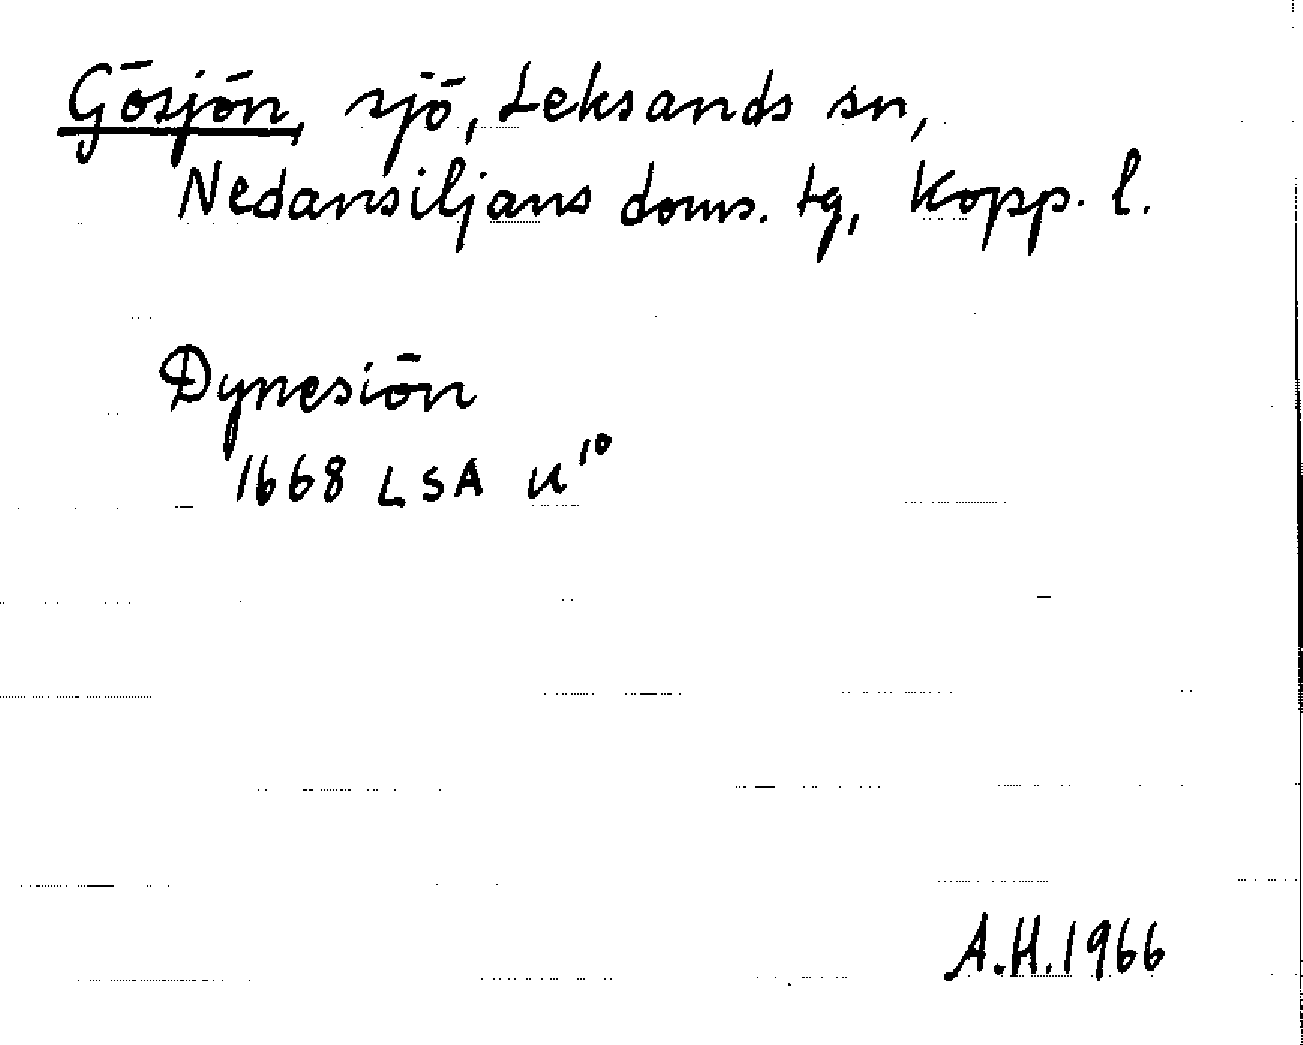 Gösjön, sjö, Leksands sn,
Nedansiljans doms. tg, Kopp. l.
Dynesiön
1668 LSA U¹⁰
A.H. 1966